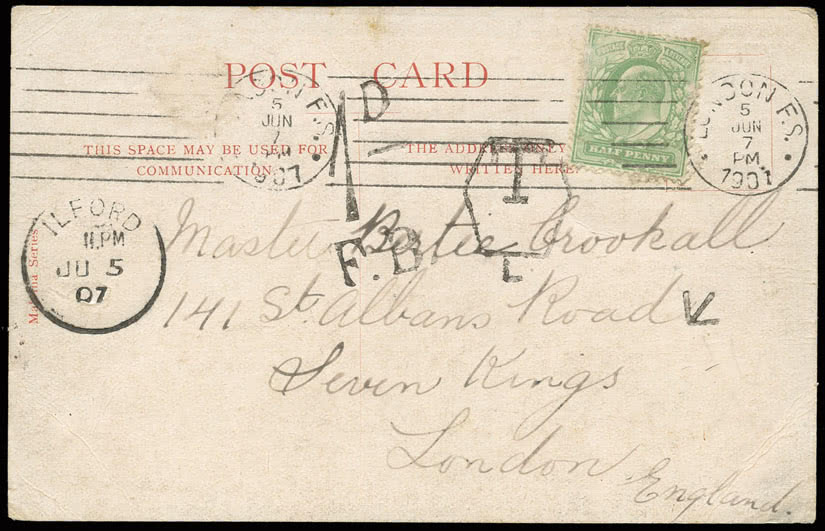 POSTAGE & REVENUE
HALF PENNY
POST CARD
LONDON F.S.
5
JUN
7
PM
1907
LONDON F.S.
5
JUN
7
PM
1907
1D
THIS SPACE MAY BE USED FOR
COMMUNICATION
THE ADDRESS ONLY
WRITTEN HERE
T
L
F.B
ILFORD
11.PM
JU 5
07
Series
Master Bertie Crookall
141 St Albans Road
Seven Kings
London
England.